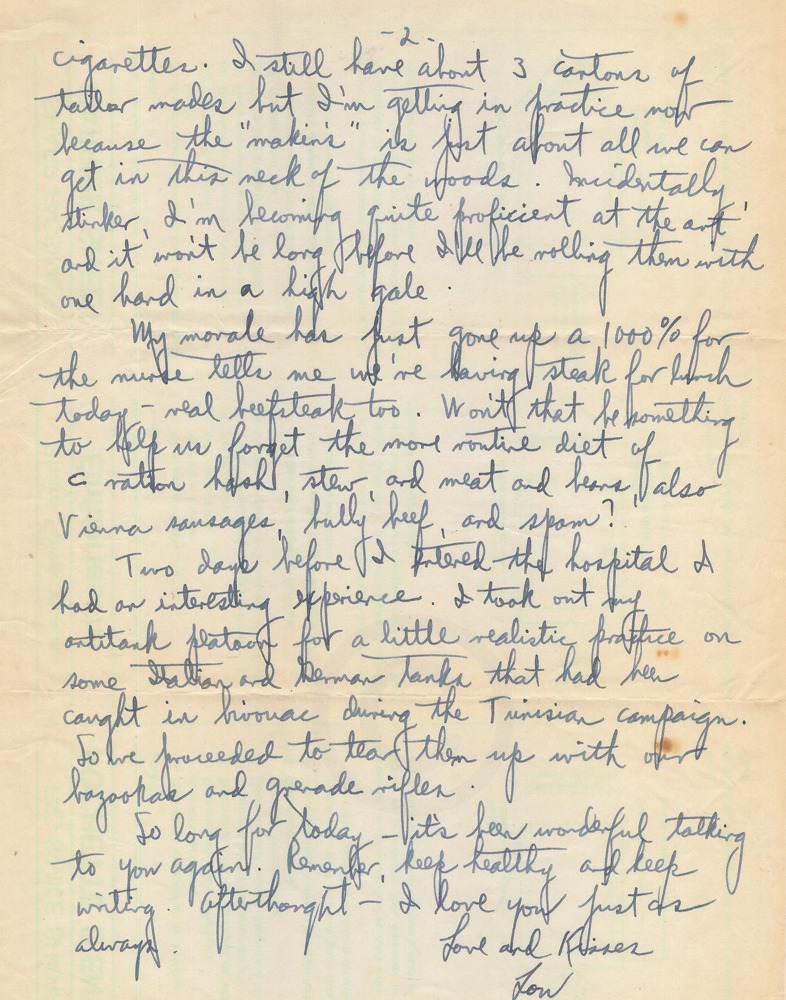 -2-
cigarettes. I still have about 3 cartons of
tailor mades but I'm getting in practice now
because the "makin's" is just about all we can
get in this neck of the woods. Incidentally
stinker, I'm becoming quite proficient at the art
and it won't be long before I'll be rolling them with
one hand in a high gale.
My morale has just gone up a 1000% for
the nurse tells me we're having steak for lunch
today - real beefsteak too. Won't that be something
to help us forget the more routine diet of
C ration hash, stew, and meat and beans, also
Vienna sausages, bully beef, and spam?
Two days before I entered the hospital I
had an interesting experience. I took out my
antitank platoon for a little realistic practice on
some Italian and German tanks that had been
caught in bivouac during the Tunisian campaign.
So we proceeded to tear them up with our
bazookas and grenade rifles.
So long for today - it's been wonderful talking
to you again. Remember, keep healthy and keep
writing. Afterthought - I love you just as
always.
Love and Kisses
Lou